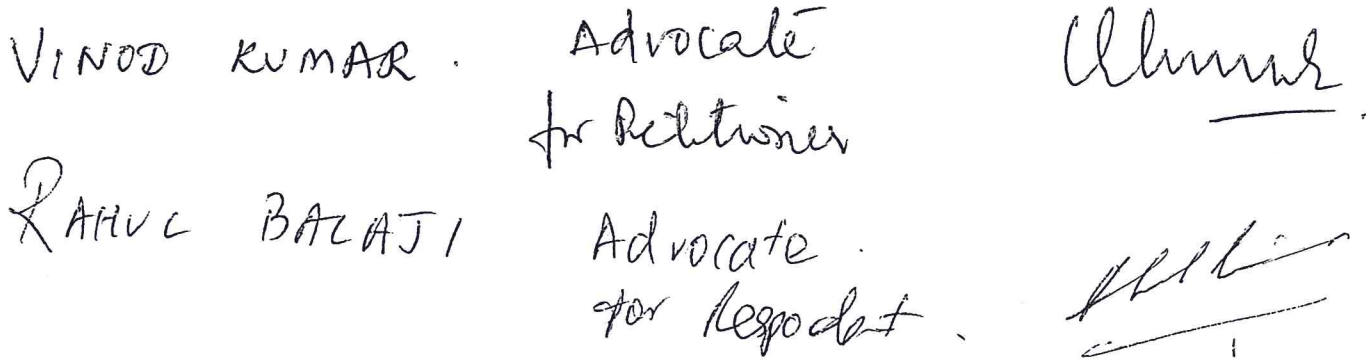 VINOD KUMAR. Advocate
for Petitioner
RAHUL BALAJI Advocate.
for Respodent.